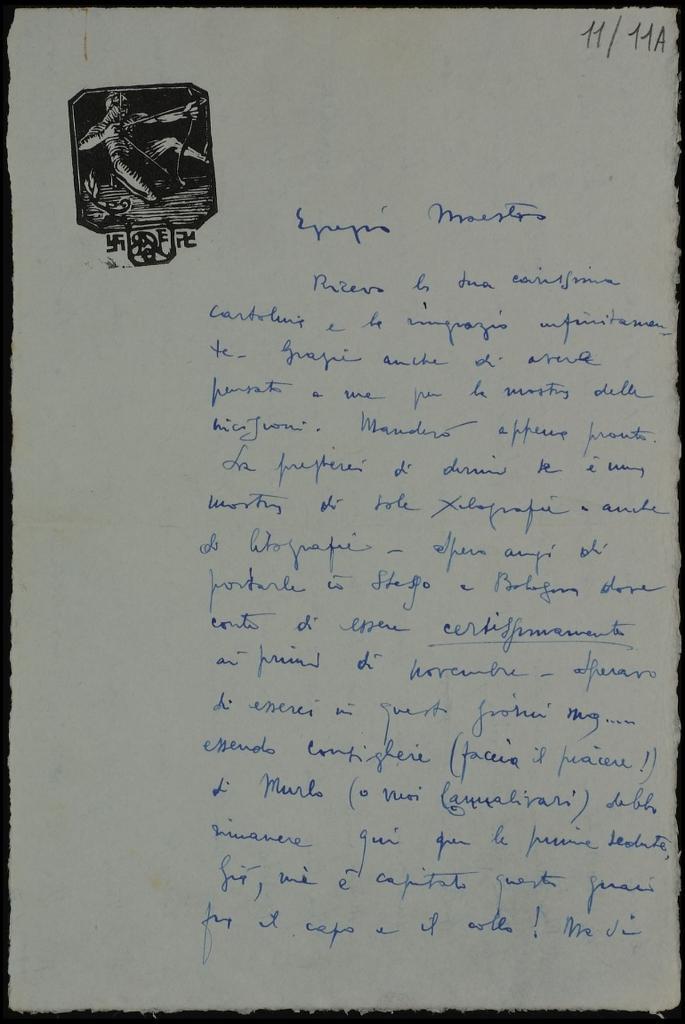 11/11A
E
Egregio Maestro
Ricevo la sua carissima
cartolina e la ringrazio infinitamen-
te - Grazie anche di avere
pensato a me per la mostra delle
incisioni. Manderò appena pronto.
La pregherei di dirmi se è una
mostra di sole xilografie o anche
di litografie - Spero anzi di
portarle io stesso a Bologna dove
conto di essere certissimamente
ai primi di novembre - Speravo
di esserci in questi giorni ma....
essendo consigliere (faccia il piacere!)
di Murlo (o miei) debbo
rimanere qui per le prime sedute,
Già, mi è capitato questo guaio
fra il capo e il collo! Ma di